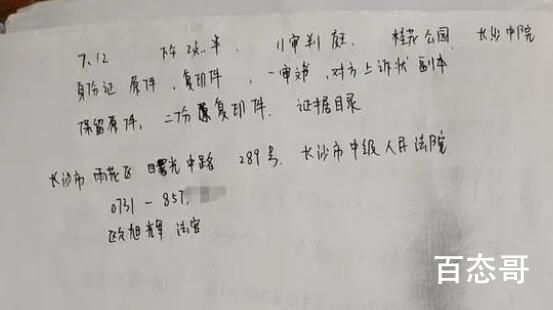 7.12 下午2点半. 11审判庭. 桂花公园 长沙中院
身份证 原件, 复印件, 一审文书, 对方上诉状副本
保留原件, 二份复印件. 证据目录
长沙市 雨花区 曙光中路 289号. 长沙市中级人民法院
0731-857
欧旭辉 法官
百态哥